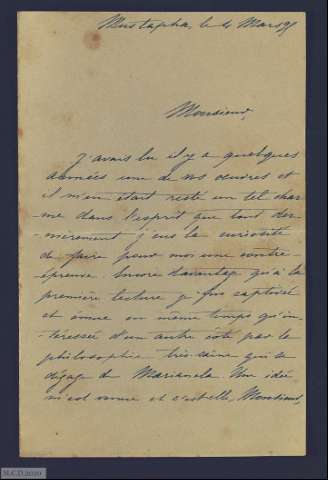 Mustapha, le 4 Mars 95
Monsieur,
J'avais lu il y a quelques
années une de vos oeuvres et
il m'en était resté un tel char-
-me dans l'esprit que tout der-
-nièrement j'eus la curiosité
de faire pour moi une contre
épreuve. Encore davantage qu'à la
première lecture je fus captivée
et émue en même temps qu'in-
-téressée d'un autre côté par la
philosophie très saine qui se
dégage de Marianela. Une idée
m'est venue et c'est elle, Monsieur,
M.C.D. 2020